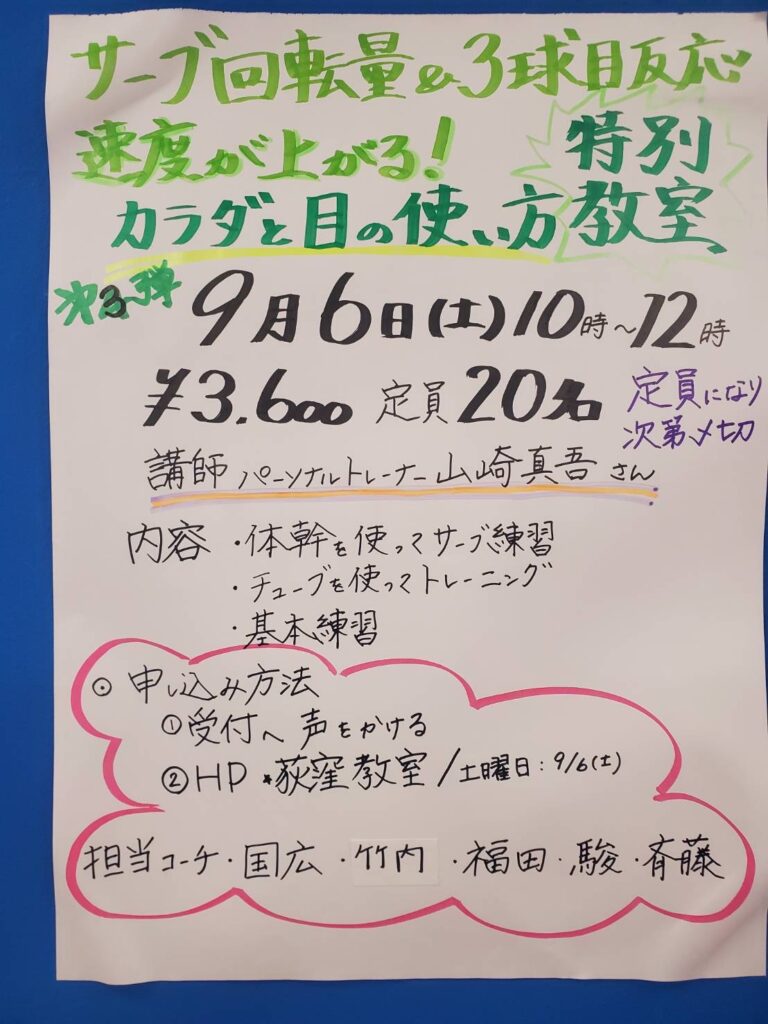 サーブ回転量&3球目反応
速度が上がる!
特別
カラダと目の使い方
教室
第3弾
9月6日(土)10時~12時
¥3.600 定員20名
定員になり
次第〆切
講師 パーソナルトレーナー山崎真吾さん
内容 ・体幹を使ってサーブ練習
・チューブを使ってトレーニング
・基本練習
⊙ 申し込み方法
①受付へ声をかける
②HP ★荻窪教室/土曜日:9/6(土)
担当コーチ・国広・竹内・福田・駿・斉藤